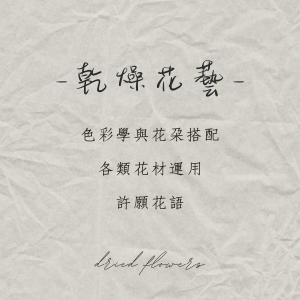 -乾燥花藝-
色彩學與花朵搭配
各類花材運用
許願花語
dried flowers